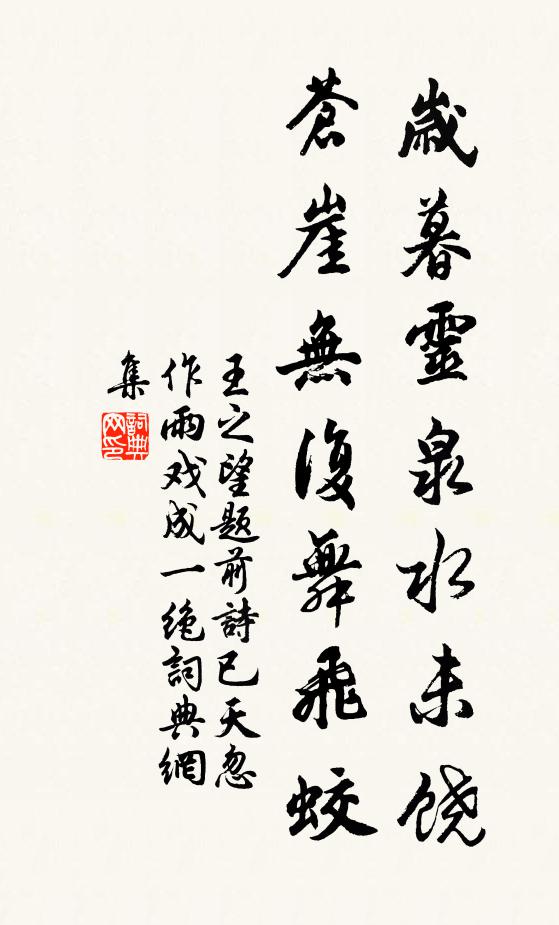 歲暮靈泉水未饶
蒼崖無復舞飛蛟
王之望題前詩已天忽
作雨戏成一绝詞典網
集
詞典网印